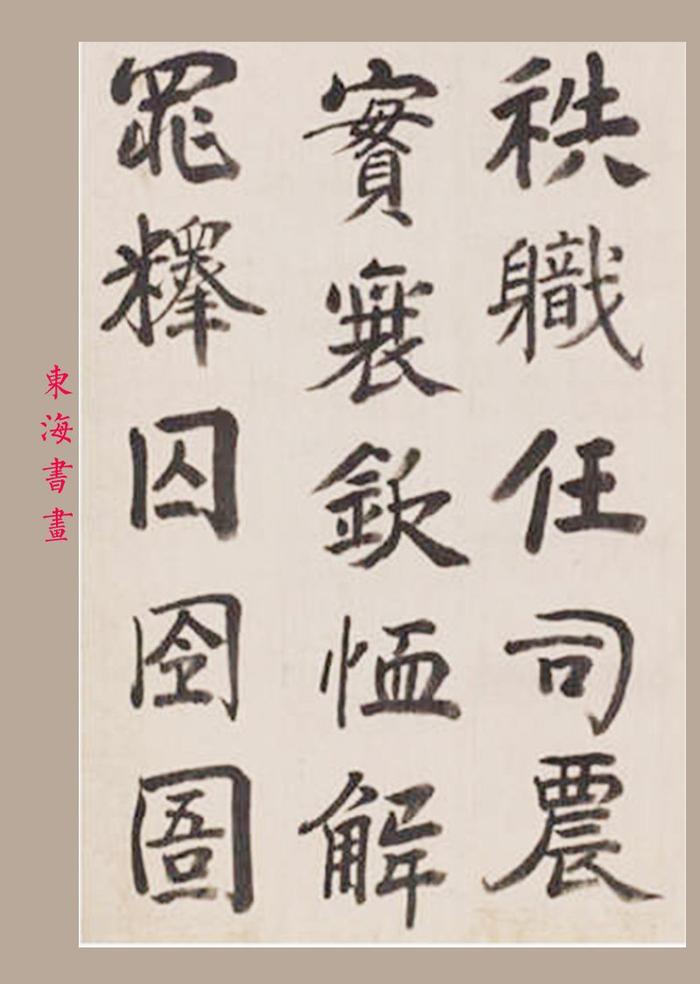 秩職任司農
實襄欽恤解
罪釋囚囹圄
東海書畫